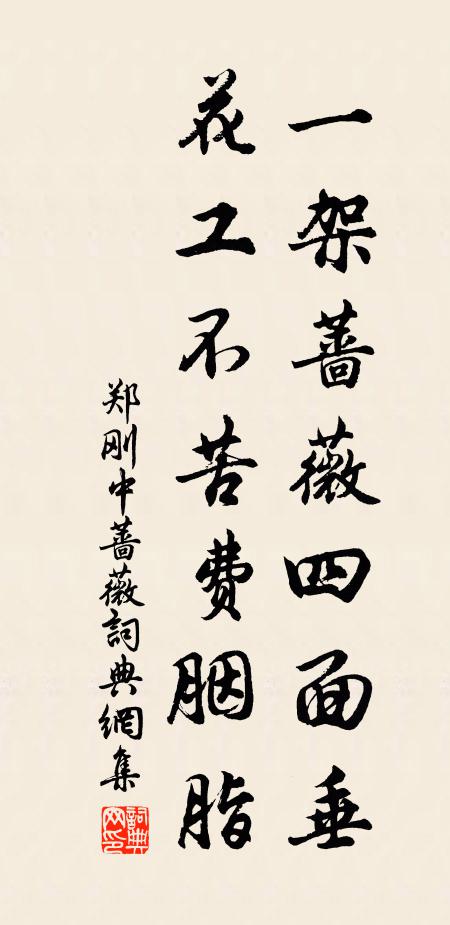 一架蔷薇四面垂
花工不苦费胭脂
郑刚中蔷薇詞典網集
詞典网印